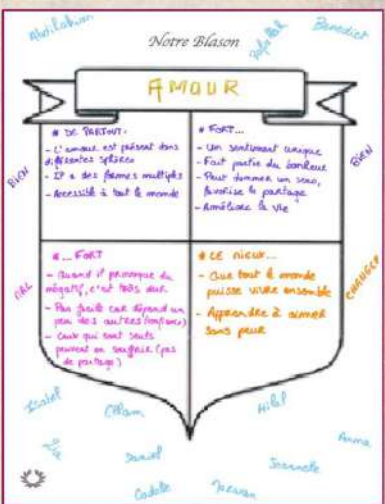 Benedict
Notre Blason
AMOUR
* DE PARTOUT.
- L'amour est présent dans
différentes sphères
- Il a des formes multiples
- Accessible à tout le monde
BIEN
* FORT...
- Un sentiment unique
- Fait partie du bonheur
- Peut donner un sens,
favorise le partage
- Améliore la vie
BIEN
* ... FORT
- Quand il provoque du
négatif, c'est très dur.
- Pas facile car dépend un
peu des autres (confiance)
- Ceux qui sont seuls
peuvent en souffrir (pas
de partage)
MAL
* LE MIEUX...
- Que tout le monde
puisse vivre ensemble
- Apprendre à aimer
sans peur
CHANGER
Isabel
Hilel
Daniel
Jeannette
Anna